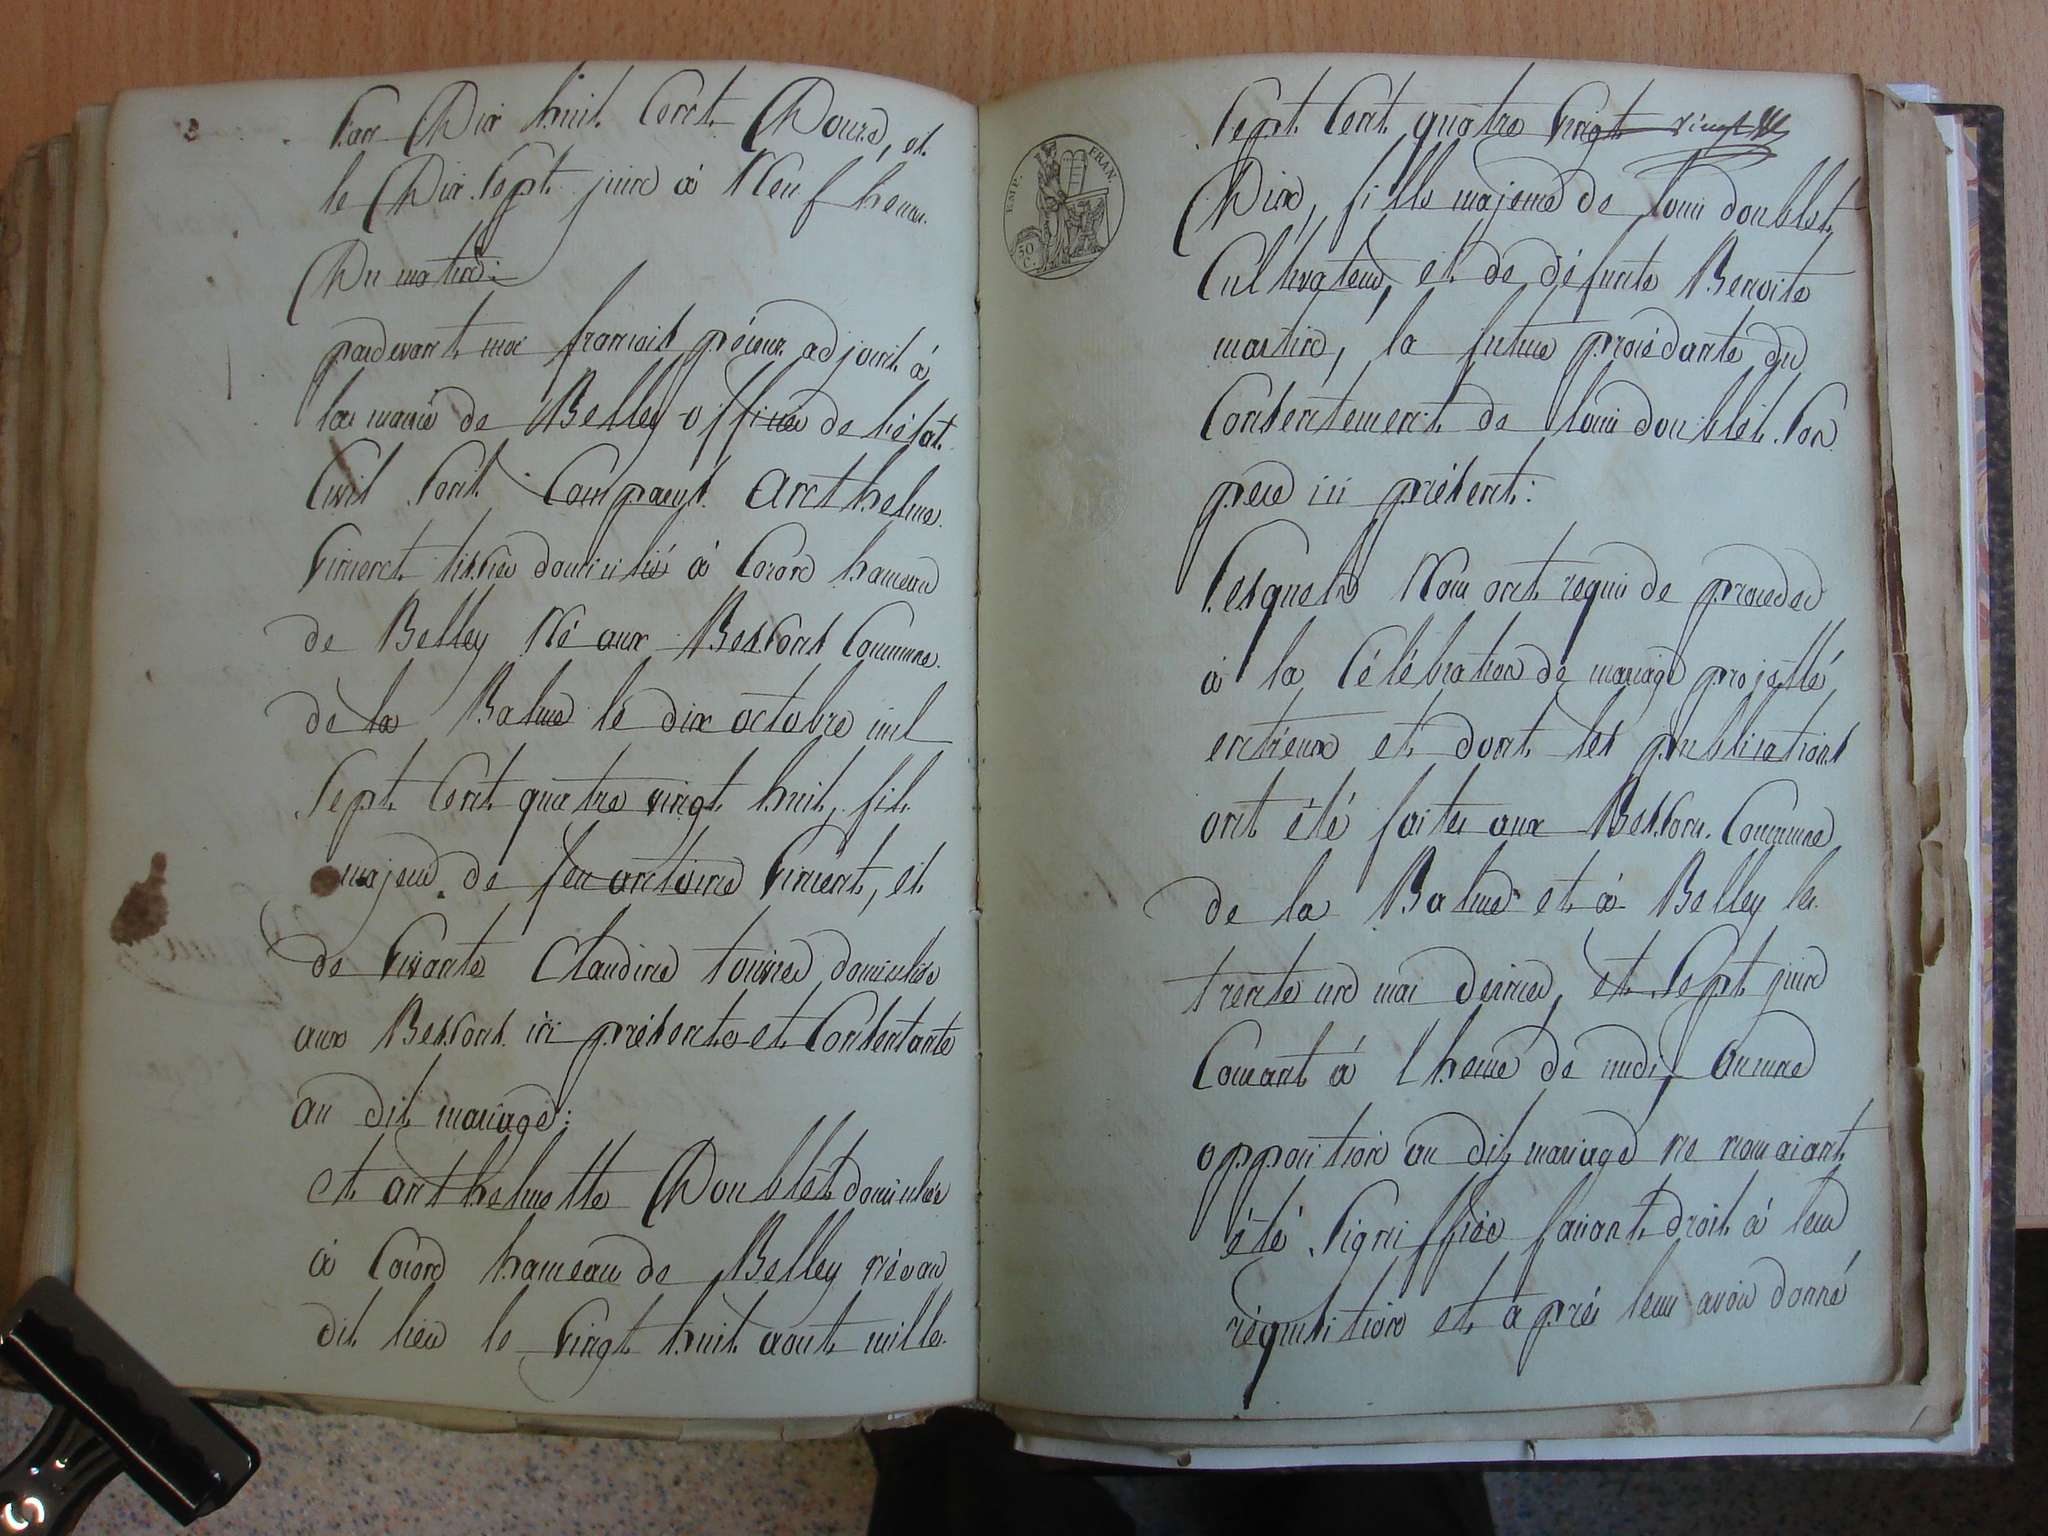 l'an Dix huit Cent Douze, et
le Dix Sept juin à Neuf heures
Du matin:
pardevant moi francois adjoint à
la mairie de Belley officier de l'état
Civil sont Comparus Anthelme
Vincent domicilié à Coron hameau
de Belley Né aux Bessons Commune
de la Balme le dix octobre mil
Sept Cent quatre vingt huit, fils
majeur de feu antoine Vincent, et
de vivante Claudine domiciliée
aux Bessons ici présente et Consentante
au dit mariage:
et anthelmette Doublet domiciliée
à Coron hameau de Belley née au
dit lieu le Vingt huit aout mille
EMP. FRAN.
50 C.
Sept Cent quatre Vingt
Dix, fille majeure de Louis doublet
Cultivateur, et de défunte Benoite
martin, la future procédante du
Consentement de Louis doublet Son
pere ici présent:
Lesquels Nous ont requis de proceder
à la Célébration de mariage projetté
entr'eux et dont les publications
ont été faites aux Bessons Commune
de la Balme et à Belley les
trente un mai dernier, et Sept juin
Courant à l'heure de midi, aucune
opposition au dit mariage ne nous aiant
été Signiffiée faisant droit à leur
réquisition et après leur avoir donné